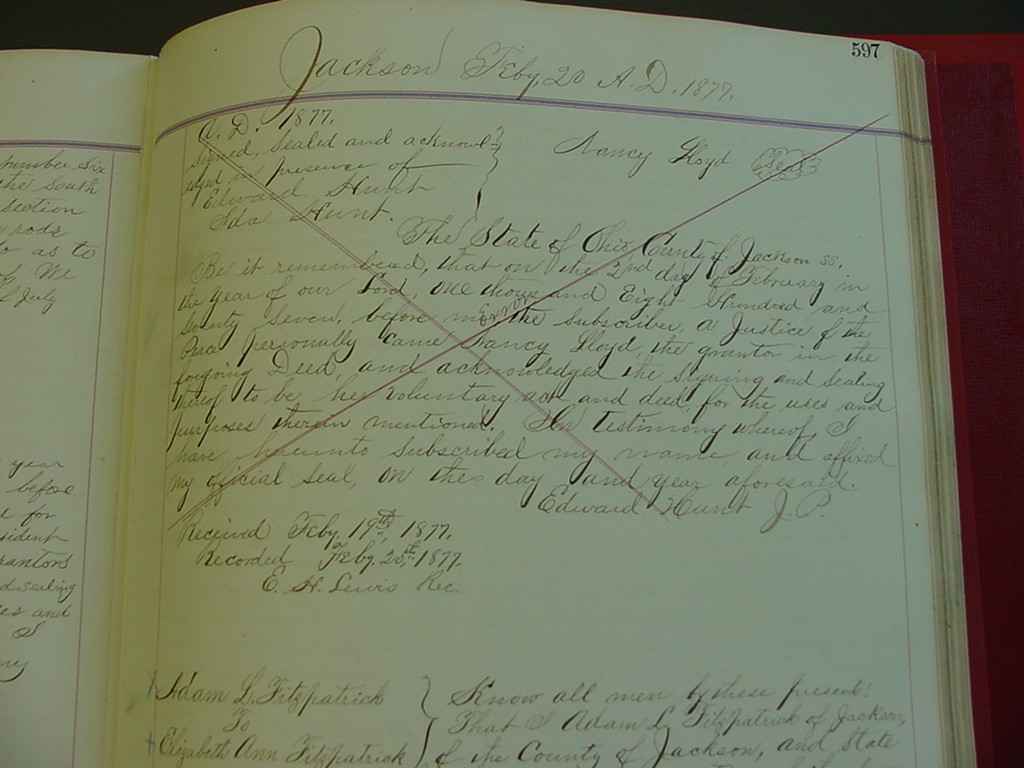 597
Jackson Feby, 20 A. D. 1877.
A. D. 1877.
Signed, Sealed and acknowl-
edged in presence of
Edward Hunt
Ida Hunt.
Nancy Lloyd Seal
The State of Ohio County of Jackson ss.
Be it remembered, that on the 2nd day of February in
the year of our Lord, one thousand Eight Hundred and
Seventy Seven, before me the Subscriber, a Justice of the
Peace personally came Nancy Lloyd, the grantor in the
forgoing Deed, and acknowledged the signing and sealing
thereof to be her voluntary act and deed, for the uses and
purposes therein mentioned. In testimony whereof, I
have hereunto Subscribed my name and affixed
my official seal, on the day and year aforesaid.
Edward Hunt J. P.
Received Feby, 19th, 1877.
Recorded Feby, 20th 1877.
E. H. Lewis Rec.
Adam L. Fitzpatrick
To
Elizabeth Ann Fitzpatrick
Know all men by these present:
That I Adam L. Fitzpatrick of Jackson,
of the County of Jackson, and State
the South
Section
rods
o as to
of July
year
before
for
sident
rantors
d sealing
es and
I